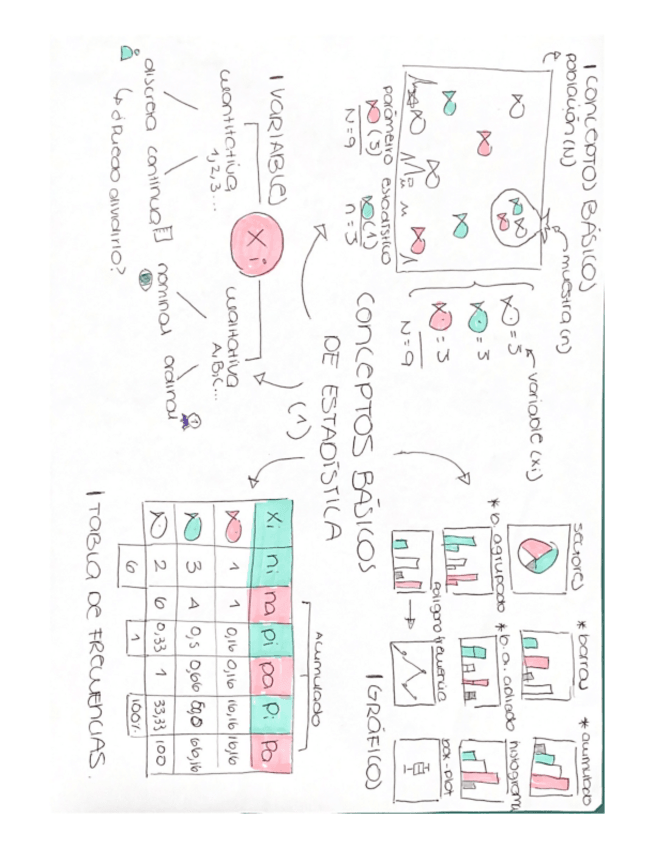 CONCEPTOS BÁSICOS
DE ESTADÍSTICA
(1)
| CONCEPTOS BÁSICOS
población (N)
muestra (n)
variable (xi)
= 3
= 3
= 3
N = 9
parámetro
(3)
N = 9
estadístico
(1)
n = 3
| VARIABLES
Xi
cuantitativa
1, 2, 3...
cualitativa
A, B, C...
discreta
continua
nominal
ordinal
↳ ¿Puedo dividirlo?
| GRÁFICOS
sectores
* barras
* acumulado
* b. agrupado
* b. a. apilado
histograma
polígono frecuencia
box-plot
| TABLA DE FRECUENCIAS.
Acumulado
Xi ni na pi pa Pi Pa
1 1 0,16 0,16 16,16 16,16
3 4 0,5 0,66 66,16
2 6 0,33 1 33,33 100
6 1 100%